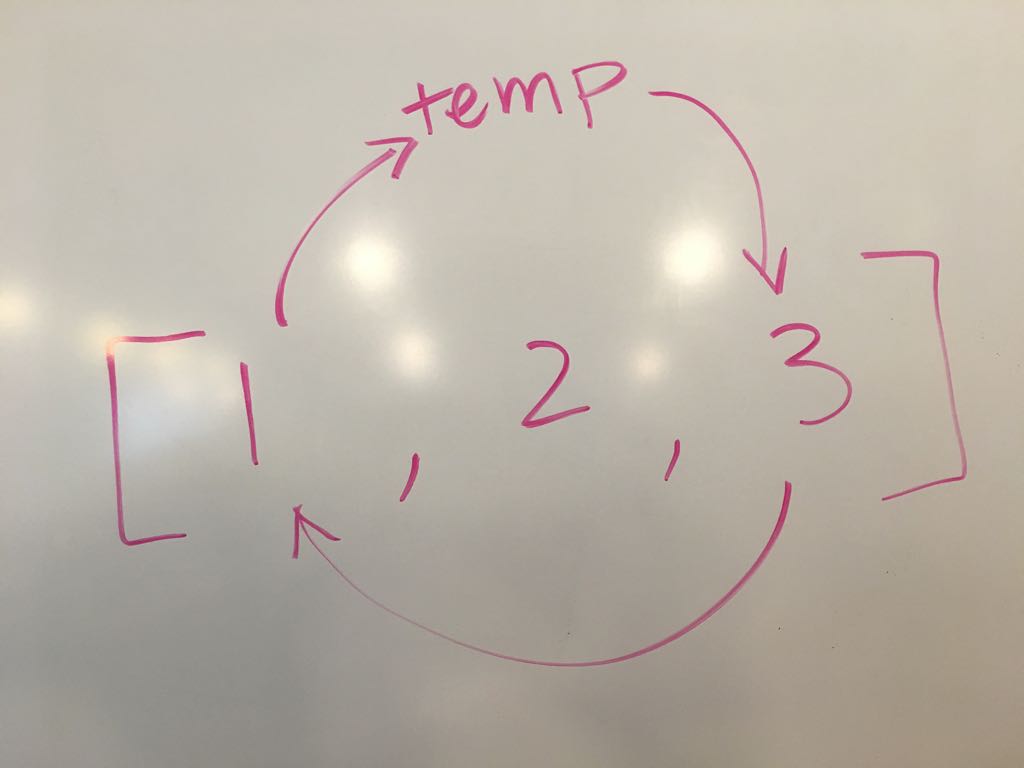 temp
[1, 2, 3]